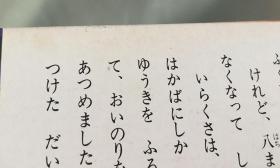 けれど、八ま
なくなって　し
いらくさは、
はかばにしか
ゆうきを　ふる
て、おいのりを
あつめました
つけた　だい